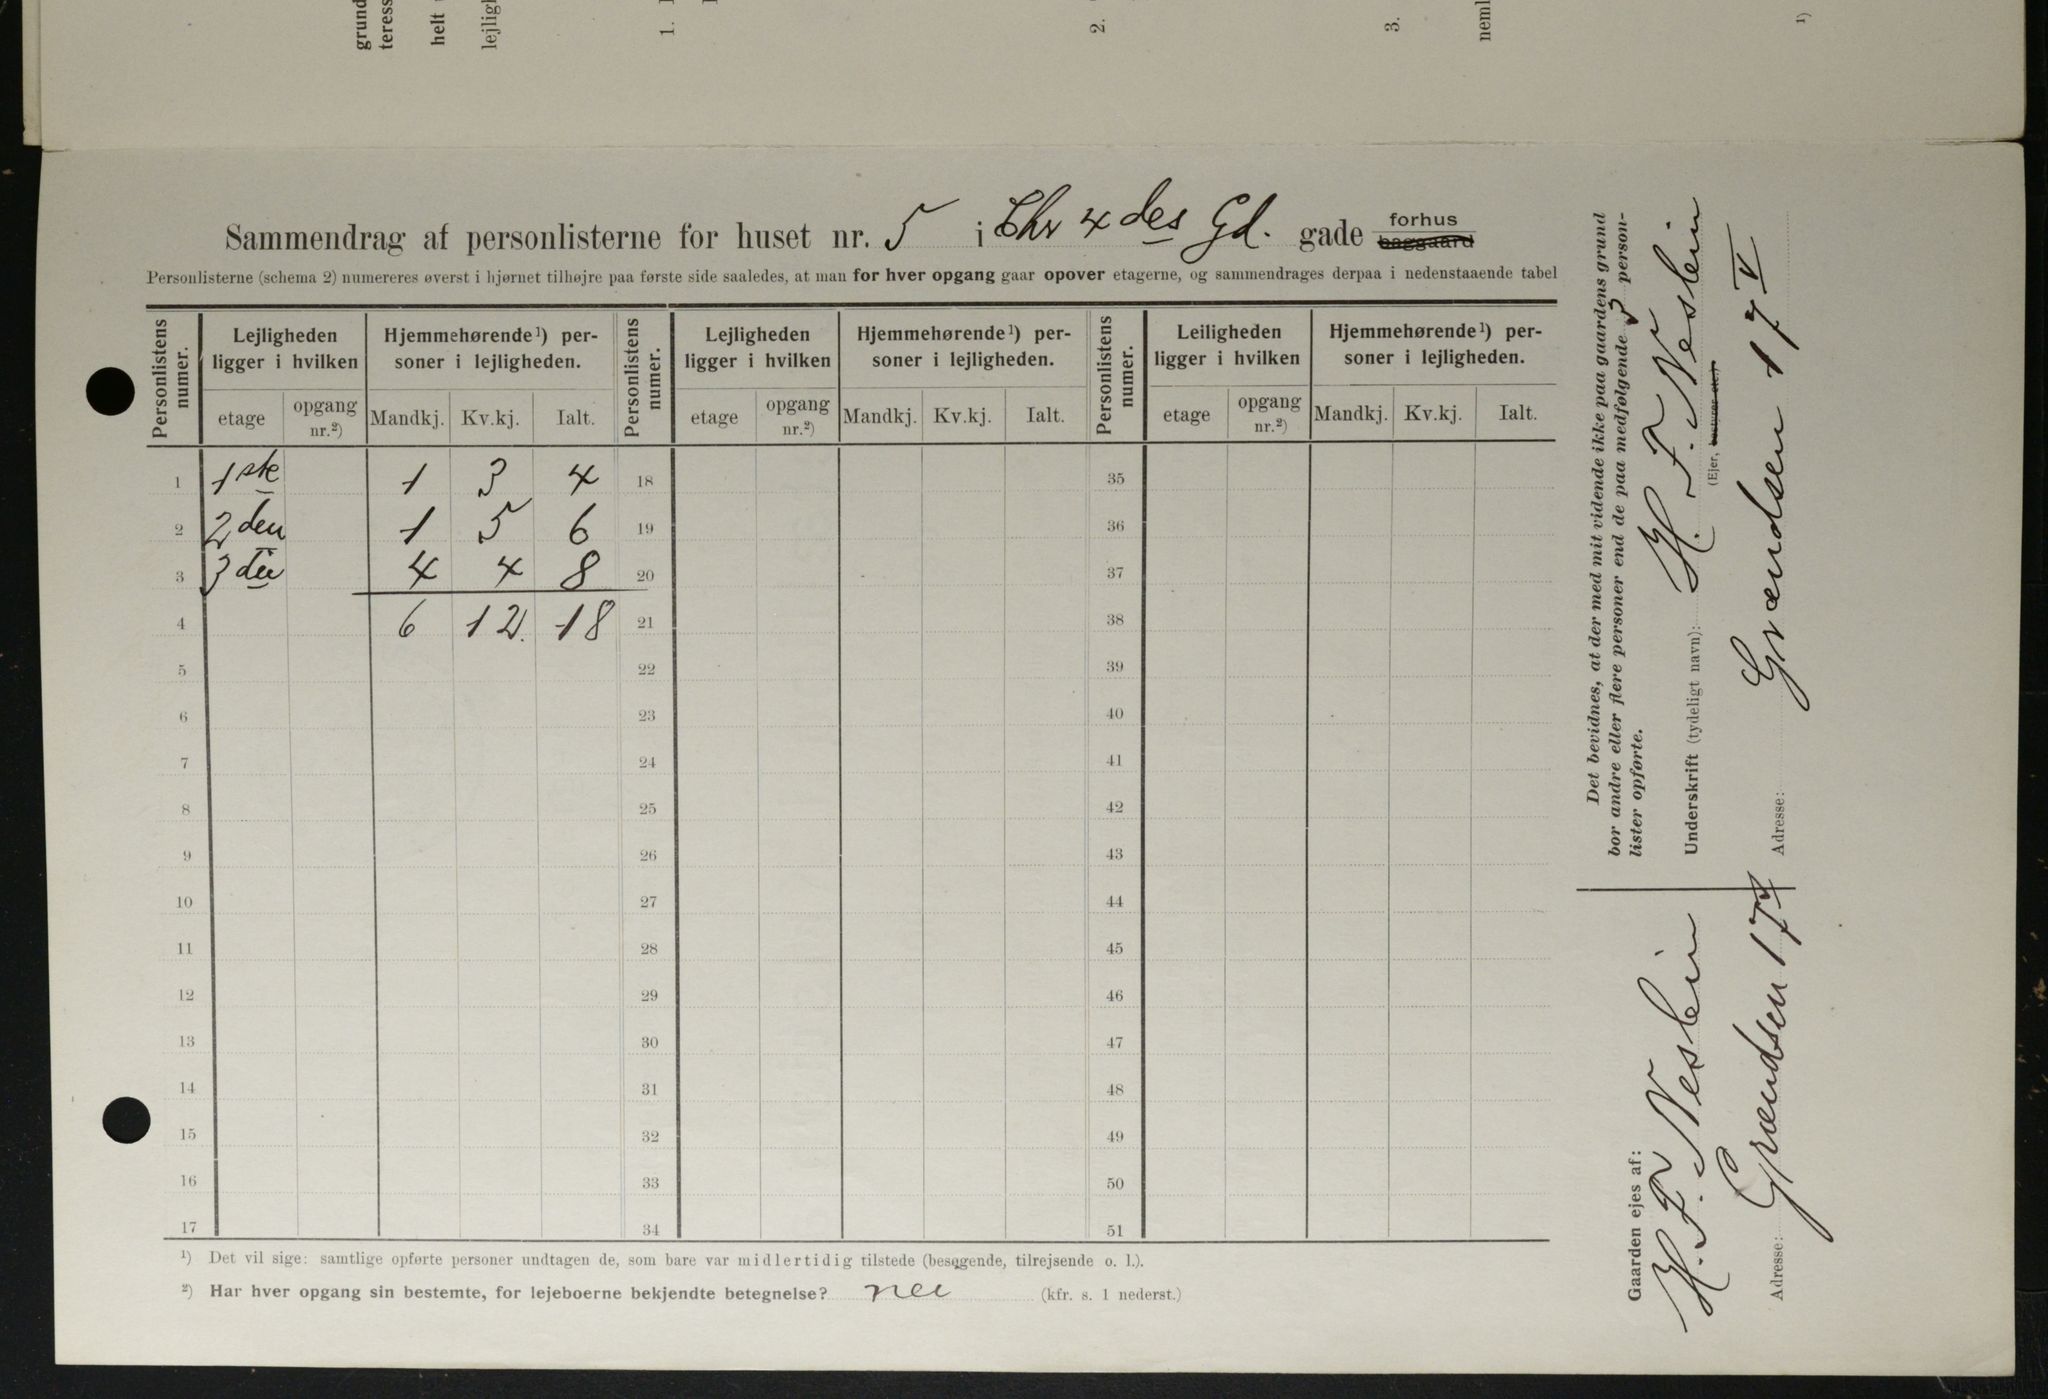 grund
teress
helt
lejligh
1.
2.
3.
neml
1)
Sammendrag af personlisterne for huset nr. 5 i Chr 4des Gd. gade forhus baggaard
Personlisterne (schema 2) numereres øverst i hjørnet tilhøjre paa første side saaledes, at man for hver opgang gaar opover etagerne, og sammendrages derpaa i nedenstaaende tabel
Personlistens numer. Lejligheden ligger i hvilken Hjemmehørende¹) personer i lejligheden. Personlistens numer. Lejligheden ligger i hvilken Hjemmehørende¹) personer i lejligheden. Personlistens numer. Leiligheden ligger i hvilken Hjemmehørende¹) personer i lejligheden.
etage opgang nr.²) Mandkj. Kv.kj. Ialt. etage opgang nr.²) Mandkj. Kv.kj. Ialt. etage opgang nr.²) Mandkj. Kv.kj. Ialt.
1 1ste 1 3 4 18 35
2 2den 1 5 6 19 36
3 3die 4 4 8 20 37
4 6 12. 18 21 38
5 22 39
6 23 40
7 24 41
8 25 42
9 26 43
10 27 44
11 28 45
12 29 46
13 30 47
14 31 48
15 32 49
16 33 50
17 34 51
¹) Det vil sige: samtlige opførte personer undtagen de, som bare var midlertidig tilstede (besøgende, tilrejsende o. l.).
²) Har hver opgang sin bestemte, for lejeboerne bekjendte betegnelse? nei (kfr. s. 1 nederst.)
Det bevidnes, at der med mit vidende ikke paa gaardens grund
bor andre eller flere personer end de paa medfølgende 3 person-
lister opførte.
Underskrift (tydeligt navn): H. F. Neslein
(Ejer, bestyrer etc.)
Adresse: Grændsen 17 V
Gaarden ejes af:
H. F. Neslein
Adresse: Grændsen 17